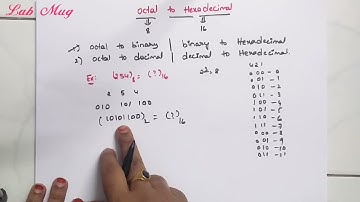 Lab Mug
Octal to Hexadecimal
8 16
1) octal to binary | binary to Hexadecimal
2) octal to decimal | decimal to Hexadecimal
Ex: (254)8 = (?)16
2 5 4
010 101 100
(10101100)2 = (?)16
4 2 1
000 - 0
001 - 1
010 - 2
011 - 3
100 - 4
101 - 5
110 - 6
111 - 7
000 - 8
001 - 9
010 - 10
011 - 11